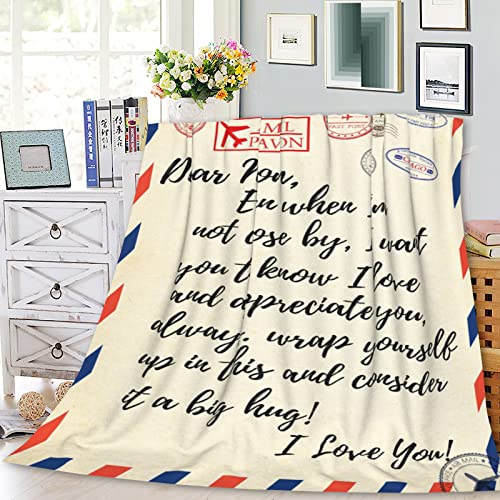 ML
PAVON
FAST POST
CAGO
Dear Yon,
En when Im
not ose by, I want
you t know I love
and apreciate you,
alway. wrap yourself
up in his and consider
it a big hug!
I Love You!
AIR MAIL